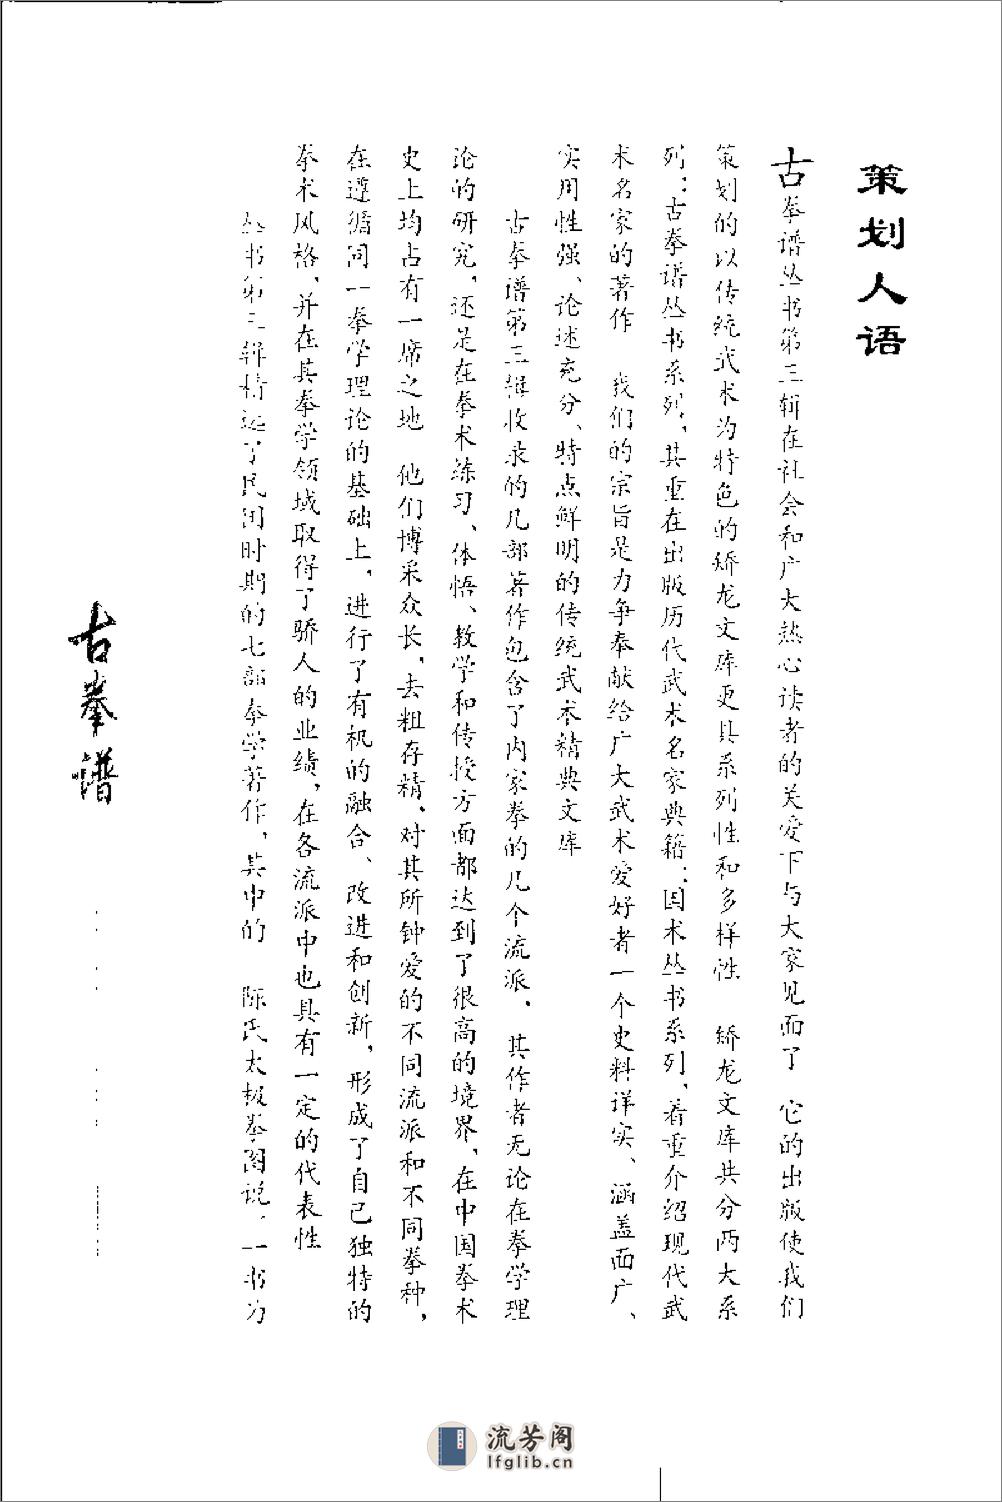 策划人语
古拳谱丛书第三辑在社会和广大热心读者的关爱下与大家见面了 它的出版使我们
策划的以传统武术为特色的矫龙文库更具系列性和多样性 矫龙文库共分两大系
列：古拳谱丛书系列，其重在出版历代武术名家典籍；国术丛书系列，着重介绍现代武
术名家的著作 我们的宗旨是力争奉献给广大武术爱好者一个史料详实、涵盖面广、
实用性强、论述充分、特点鲜明的传统武术精典文库
古拳谱第三辑收录的几部著作包含了内家拳的几个流派，其作者无论在拳学理
论的研究，还是在拳术练习、体悟、教学和传授方面都达到了很高的境界，在中国拳术
史上均占有一席之地 他们博采众长，去粗存精，对其所钟爱的不同流派和不同拳种，
在遵循同一拳学理论的基础上，进行了有机的融合、改进和创新，形成了自己独特的
拳术风格，并在其拳学领域取得了骄人的业绩，在各流派中也具有一定的代表性
丛书第三辑精选了民国时期的七部拳学著作，其中的 陈氏太极拳图说 一书为
古拳谱
流芳阁
lfglib.cn